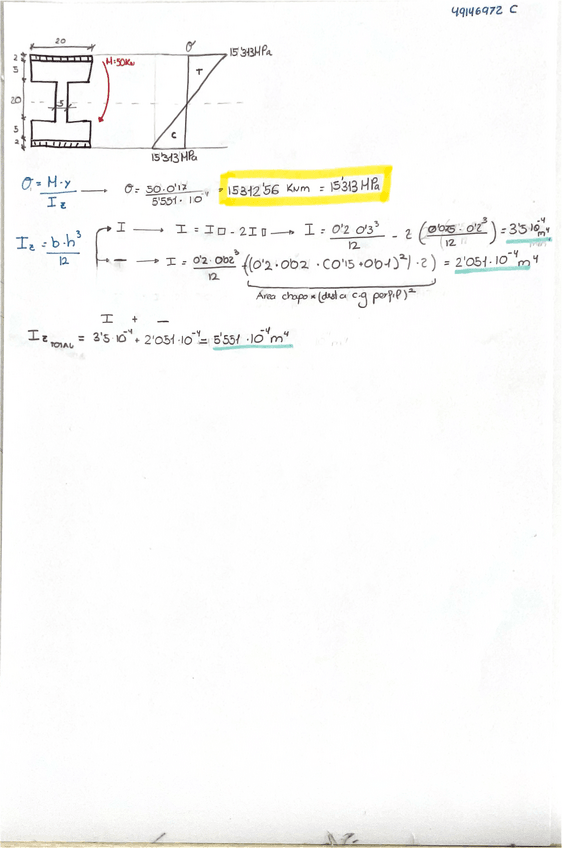 49146972 C
20
σ
15'313 MPa
2
5
M=50KN
T
20
5
C
5
2
15'313 MPa
σ = M·y / Iz → σ = 50·0'17 / 5'551·10⁻⁴ = 15312'56 KNm = 15'313 MPa
Iz = b·h³ / 12
I → I = I□ - 2I▯ → I = 0'2 0'3³ / 12 - 2 (0'075·0'2³ / 12) = 3'5·10⁻⁴ m⁴
— → I = 0'2·0'02³ / 12 + ((0'2·0'02·(0'15+0'01)²)·2) = 2'051·10⁻⁴ m⁴
Area chapa × (dist a c.g perfil)²
I + —
Iz TOTAL = 3'5·10⁻⁴ + 2'051·10⁻⁴ = 5'551·10⁻⁴ m⁴